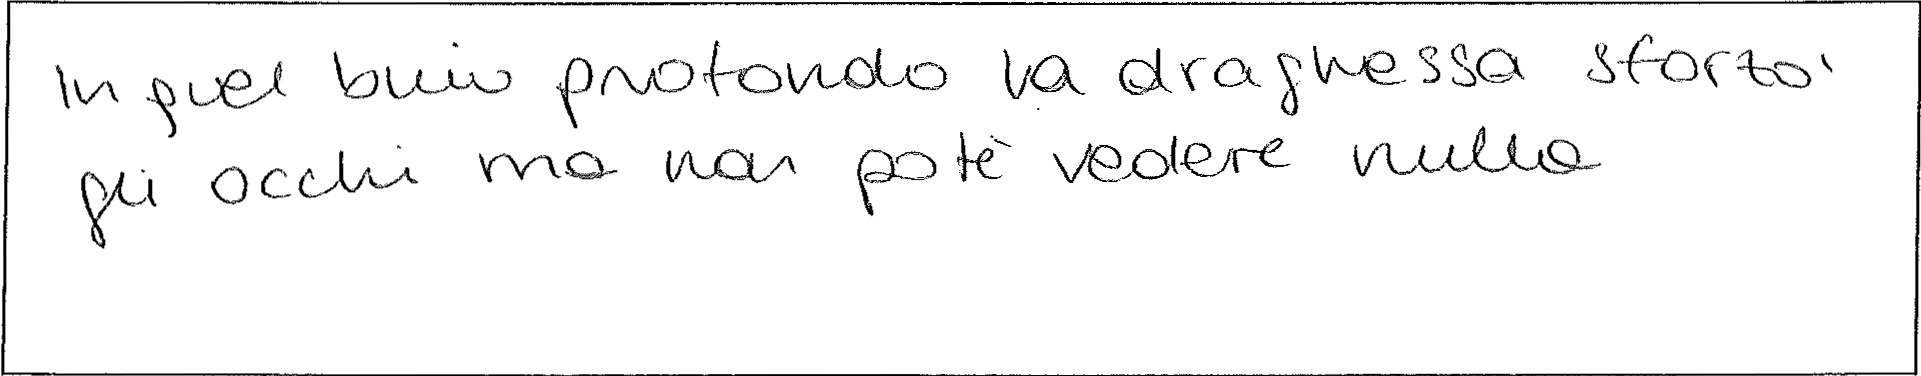 In quel buio profondo la draghessa sforzo'
gli occhi ma non potè vedere nulla